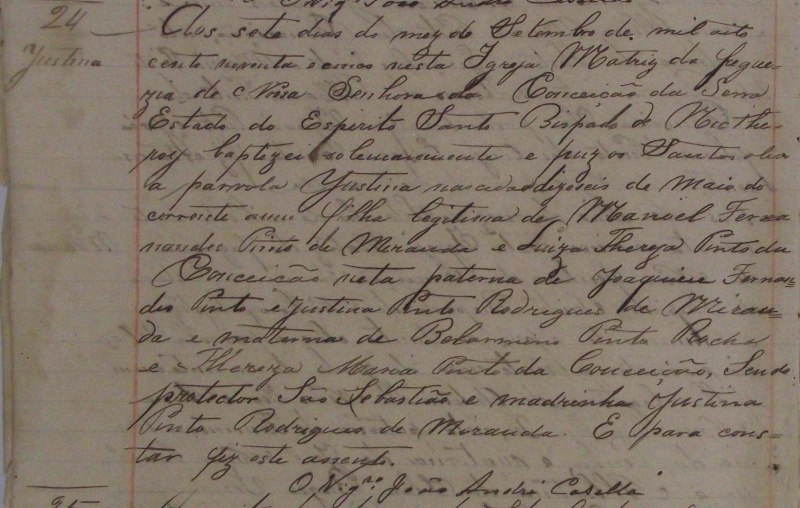 O Vigº João André Casella
24
Justina
Aos sete dias do mez de Setembro de mil oito
cento noventa e cinco nesta Igreja Matriz da fregue-
zia de Nossa Senhora da Conceição da Serra
Estado do Espirito Santo Bispado de Nicthe-
roy baptizei solemnemente e puz os Santos oleos
a parvola Justina nascida a dizeseis de Maio do
corrente anno filha legitima de Manoel Ferna
nandes Pinto de Miranda e Luiza Thereza Pinto da
Conceição neta paterna de Joaquim Fernan-
des Pinto e Justina Pinto Rodrigues de Miran-
da e materna de Belarmino Pinto Rocha
e Thereza Maria Pinto da Conceição, Sendo
protector São Sebastião e madrinha Justina
Pinto Rodrigues de Miranda. E para cons-
tar fiz este assento.
O Vigrº João André Casella
25